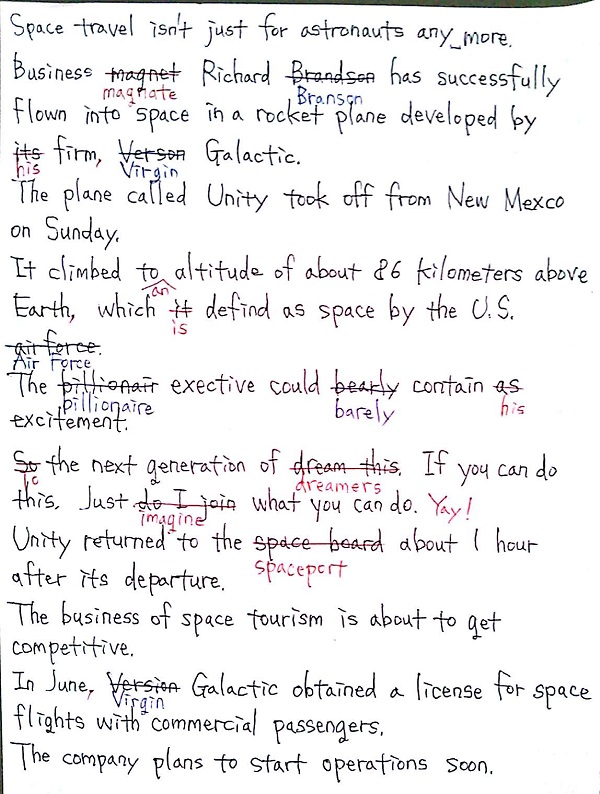 Space travel isn't just for astronauts any_more.
Business magnet Richard Brandson has successfully
magnate Branson
flown into space in a rocket plane developed by
its firm, Verson Galactic.
his Virgin
The plane called Unity took off from New Mexco
on Sunday.
It climbed to altitude of about 86 kilometers above
an
Earth, which it defind as space by the U.S.
is
air force.
Air Force
The pillionair exective could bearly contain as
pillionaire barely his
excitement.
So the next generation of dream this. If you can do
To dreamers
this. Just do I join what you can do. Yay!
imagine
Unity returned to the space board about 1 hour
spaceport
after its departure.
The business of space tourism is about to get
competitive.
In June, Version Galactic obtained a license for space
Virgin
flights with commercial passengers.
The company plans to start operations soon.